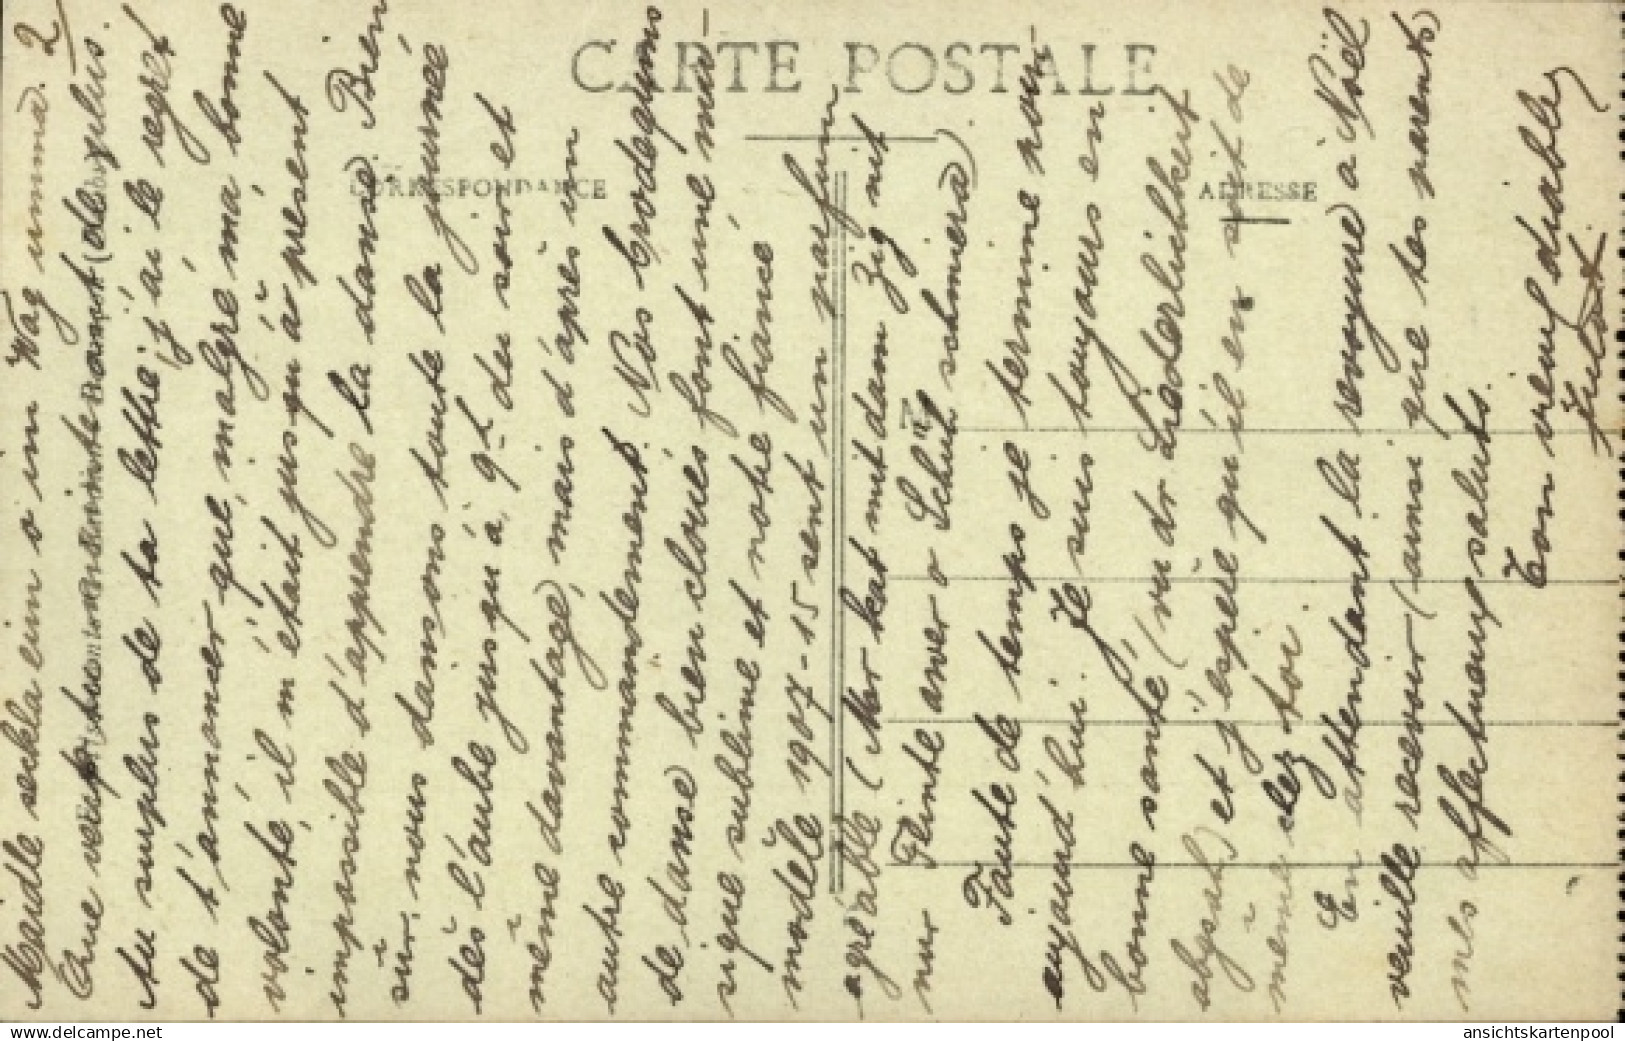 CARTE POSTALE
CORRESPONDANCE
ADRESSE
2
Maidle senkla eim o im Wag umma.
Que veux-tu de plus.
Au surplus de ta lettre j'ai le regret
de t'annoncer que, malgré ma bonne
volonté, il m'était jusqu'à présent
impossible d'apprendre la danse. Bien
sûr, nous dansons toute la journée
dès l'aube jusqu'à 9 h du soir et
même davantage, mais d'après un
autre commandement. Nos brodequins
de danse bien cloués font une mu-
sique sublime et notre fiancé
modèle 1907-15 sent un parfum
agréable (Mer hat mit dam Zig nit
nur Flinte awer o Schüh schmiera).
Faute de temps je termine pour
aujourd'hui. Je suis toujours en
bonne santé (vu dr Liaderlichkeit
abgsah) et j'espère qu'il en soit de
même chez toi.
En attendant la revoyure à Noël
veuille recevoir (ainsi que tes parents)
mes affectueux saluts.
Ton vieux diable
Julot
ansichtskartenpool auf delcampe.net
ansichtskartenpool